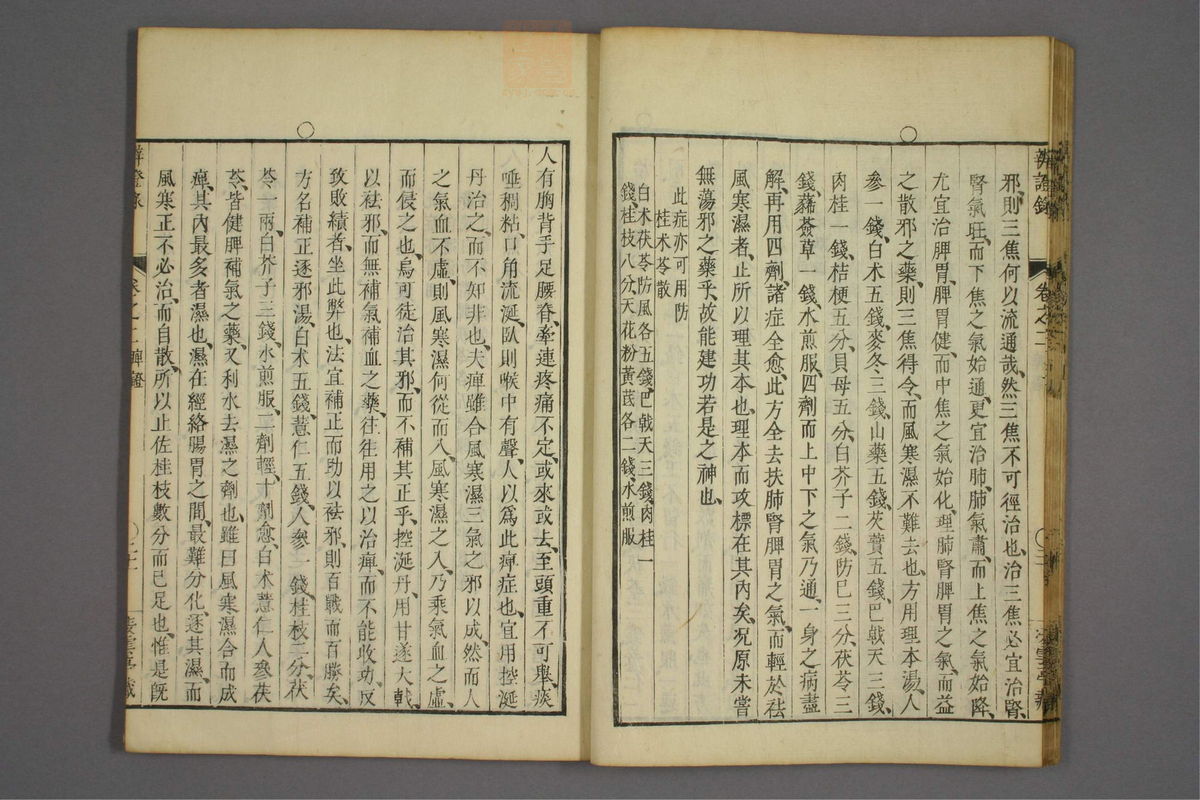 辨證錄 卷之二
邪、則三焦何以流通哉、然三焦不可徑治也、治三焦必宜治腎、
腎氣旺、而下焦之氣始通、更宜治肺、肺氣肅、而上焦之氣始降、
尤宜治脾胃、脾胃健、而中焦之氣始化、理肺腎脾胃之氣、而益
之散邪之藥、則三焦得令、而風寒濕不難去也、方用理本湯、人
參一錢、白术五錢、麥冬三錢、山藥五錢、芡實五錢、巴戟天三錢、
肉桂一錢、桔梗五分、貝母五分、白芥子二錢、防巳三分、茯苓三
錢、豨薟草一錢、水煎服、四劑而上中下之氣乃通、一身之病盡
解、再用四劑、諸症全愈、此方全去扶肺腎脾胃之氣、而輕於祛
風寒濕者、止所以理其本也、理本而攻標在其內矣、况原未嘗
無蕩邪之藥乎、故能建功若是之神也、
此症亦可用防
桂术苓散
白术茯苓防風各五錢、巴戟天三錢、肉桂一
錢、桂枝八分、天花粉黃芪各二錢、水煎服
人有胸背手足腰脊、牽連疼痛不定、或來或去、至頭重不可舉、痰
唾稠粘、口角流涎、臥則喉中有聲、人以爲此痺症也、宜用控涎
丹治之、而不知非也、夫痺雖合風寒濕三氣之邪以成、然而人
之氣血不虛、則風寒濕何從而入、風寒濕之入、乃乘氣血之虛、
而侵之也、烏可徒治其邪、而不補其正乎、控涎丹、用甘遂大戟、
以祛邪、而無補氣補血之藥、往往用之以治痺、而不能收功、反
致敗績者、坐此弊也、法宜補正而助以祛邪、則百戰而百勝矣、
方名補正逐邪湯、白术五錢、薏仁五錢、人參一錢、桂枝三分、茯
苓一兩、白芥子三錢、水煎服、二劑輕、十劑愈、白术薏仁人參茯
苓、皆健脾補氣之藥、又利水去濕之劑也、雖曰風寒濕合而成
痺、其內最多者濕也、濕在經絡腸胃之間、最難分化、逐其濕、而
風寒正不必治、而自散、所以止佐桂枝數分而已足也、惟是既
辨證錄 卷之二 痺證